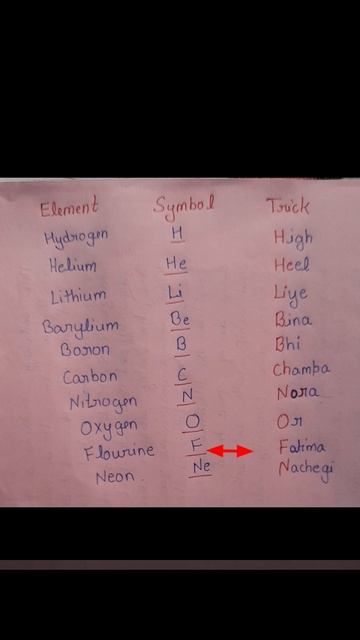 Element Symbol Trick
Hydrogen H High
Helium He Heel
Lithium Li Liye
Barylium Be Bina
Boron B Bhi
Carbon C Chamba
Nitrogen N Nora
Oxygen O Or
Flourine F Fatima
Neon Ne Nachegi